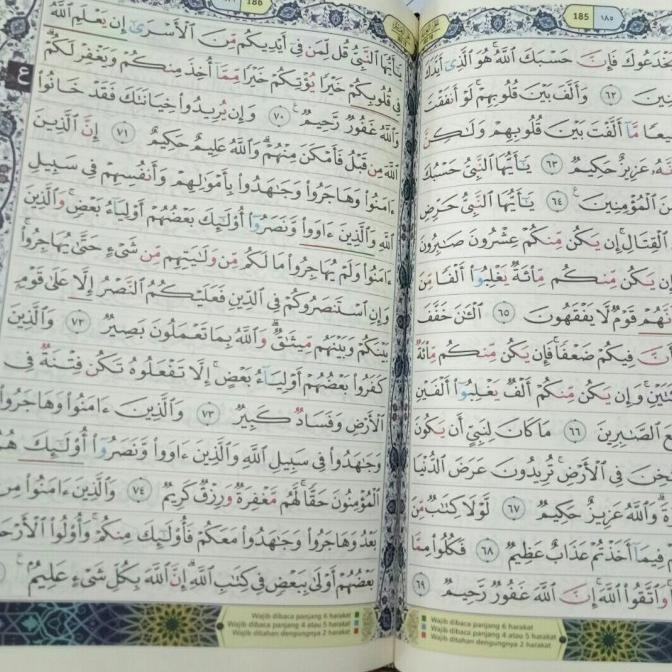 185 ١٨٥
فَإِنَّ حَسْبَكَ ٱللَّهُ ۚ هُوَ ٱلَّذِىٓ أَيَّدَكَ
٦٢ وَأَلَّفَ بَيْنَ قُلُوبِهِمْ ۚ لَوْ أَنفَقْتَ
مَّآ أَلَّفْتَ بَيْنَ قُلُوبِهِمْ وَلَٰكِنَّ
عَزِيزٌ حَكِيمٌ ٦٣ يَٰٓأَيُّهَا ٱلنَّبِىُّ حَسْبُكَ
ٱلْمُؤْمِنِينَ ٦٤ يَٰٓأَيُّهَا ٱلنَّبِىُّ حَرِّضِ
ٱلْقِتَالِ ۚ إِن يَكُن مِّنكُمْ عِشْرُونَ صَٰبِرُونَ
يَكُن مِّنكُم مِّا۟ئَةٌ يَغْلِبُوٓا۟ أَلْفًا مِّنَ
قَوْمٌ لَّا يَفْقَهُونَ ٦٥ ٱلْـَٰٔنَ خَفَّفَ
فِيكُمْ ضَعْفًا ۚ فَإِن يَكُن مِّنكُم مِّا۟ئَةٌ
وَإِن يَكُن مِّنكُمْ أَلْفٌ يَغْلِبُوٓا۟ أَلْفَيْنِ
ٱلصَّٰبِرِينَ ٦٦ مَا كَانَ لِنَبِىٍّ أَن يَكُونَ
فِى ٱلْأَرْضِ ۚ تُرِيدُونَ عَرَضَ ٱلدُّنْيَا
وَٱللَّهُ عَزِيزٌ حَكِيمٌ ٦٧ لَّوْلَا كِتَٰبٌ مِّنَ
فِيمَآ أَخَذْتُمْ عَذَابٌ عَظِيمٌ ٦٨ فَكُلُوا۟ مِمَّا
وَٱتَّقُوا۟ ٱللَّهَ ۚ إِنَّ ٱللَّهَ غَفُورٌ رَّحِيمٌ ٦٩
Wajib dibaca panjang 6 harakat
Wajib dibaca panjang 4 atau 5 harakat
Wajib ditahan dengungnya 2 harakat
186
يَٰٓأَيُّهَا ٱلنَّبِىُّ قُل لِّمَن فِىٓ أَيْدِيكُم مِّنَ ٱلْأَسْرَىٰٓ إِن يَعْلَمِ ٱللَّهُ
فِى قُلُوبِكُمْ خَيْرًا يُؤْتِكُمْ خَيْرًا مِّمَّآ أُخِذَ مِنكُمْ وَيَغْفِرْ لَكُمْ ۗ
وَٱللَّهُ غَفُورٌ رَّحِيمٌ ٧٠ وَإِن يُرِيدُوا۟ خِيَانَتَكَ فَقَدْ خَانُوا۟
ٱللَّهَ مِن قَبْلُ فَأَمْكَنَ مِنْهُمْ ۗ وَٱللَّهُ عَلِيمٌ حَكِيمٌ ٧١ إِنَّ ٱلَّذِينَ
ءَامَنُوا۟ وَهَاجَرُوا۟ وَجَٰهَدُوا۟ بِأَمْوَٰلِهِمْ وَأَنفُسِهِمْ فِى سَبِيلِ
ٱللَّهِ وَٱلَّذِينَ ءَاوَوا۟ وَّنَصَرُوٓا۟ أُو۟لَٰٓئِكَ بَعْضُهُمْ أَوْلِيَآءُ بَعْضٍ ۚ وَٱلَّذِينَ
ءَامَنُوا۟ وَلَمْ يُهَاجِرُوا۟ مَا لَكُم مِّن وَلَٰيَتِهِم مِّن شَىْءٍ حَتَّىٰ يُهَاجِرُوا۟ ۚ
وَإِنِ ٱسْتَنصَرُوكُمْ فِى ٱلدِّينِ فَعَلَيْكُمُ ٱلنَّصْرُ إِلَّا عَلَىٰ قَوْمٍۭ
بَيْنَكُمْ وَبَيْنَهُم مِّيثَٰقٌ ۗ وَٱللَّهُ بِمَا تَعْمَلُونَ بَصِيرٌ ٧٢ وَٱلَّذِينَ
كَفَرُوا۟ بَعْضُهُمْ أَوْلِيَآءُ بَعْضٍ ۚ إِلَّا تَفْعَلُوهُ تَكُن فِتْنَةٌ فِى
ٱلْأَرْضِ وَفَسَادٌ كَبِيرٌ ٧٣ وَٱلَّذِينَ ءَامَنُوا۟ وَهَاجَرُوا۟
وَجَٰهَدُوا۟ فِى سَبِيلِ ٱللَّهِ وَٱلَّذِينَ ءَاوَوا۟ وَّنَصَرُوٓا۟ أُو۟لَٰٓئِكَ هُمُ
ٱلْمُؤْمِنُونَ حَقًّا ۚ لَّهُم مَّغْفِرَةٌ وَرِزْقٌ كَرِيمٌ ٧٤ وَٱلَّذِينَ ءَامَنُوا۟ مِنۢ
بَعْدُ وَهَاجَرُوا۟ وَجَٰهَدُوا۟ مَعَكُمْ فَأُو۟لَٰٓئِكَ مِنكُمْ ۚ وَأُو۟لُوا۟
بَعْضُهُمْ أَوْلَىٰ بِبَعْضٍ فِى كِتَٰبِ ٱللَّهِ ۗ إِنَّ ٱللَّهَ بِكُلِّ شَىْءٍ عَلِيمٌۢ
Wajib dibaca panjang 6 harakat
Wajib dibaca panjang 4 atau 5 harakat
Wajib ditahan dengungnya 2 harakat
ع